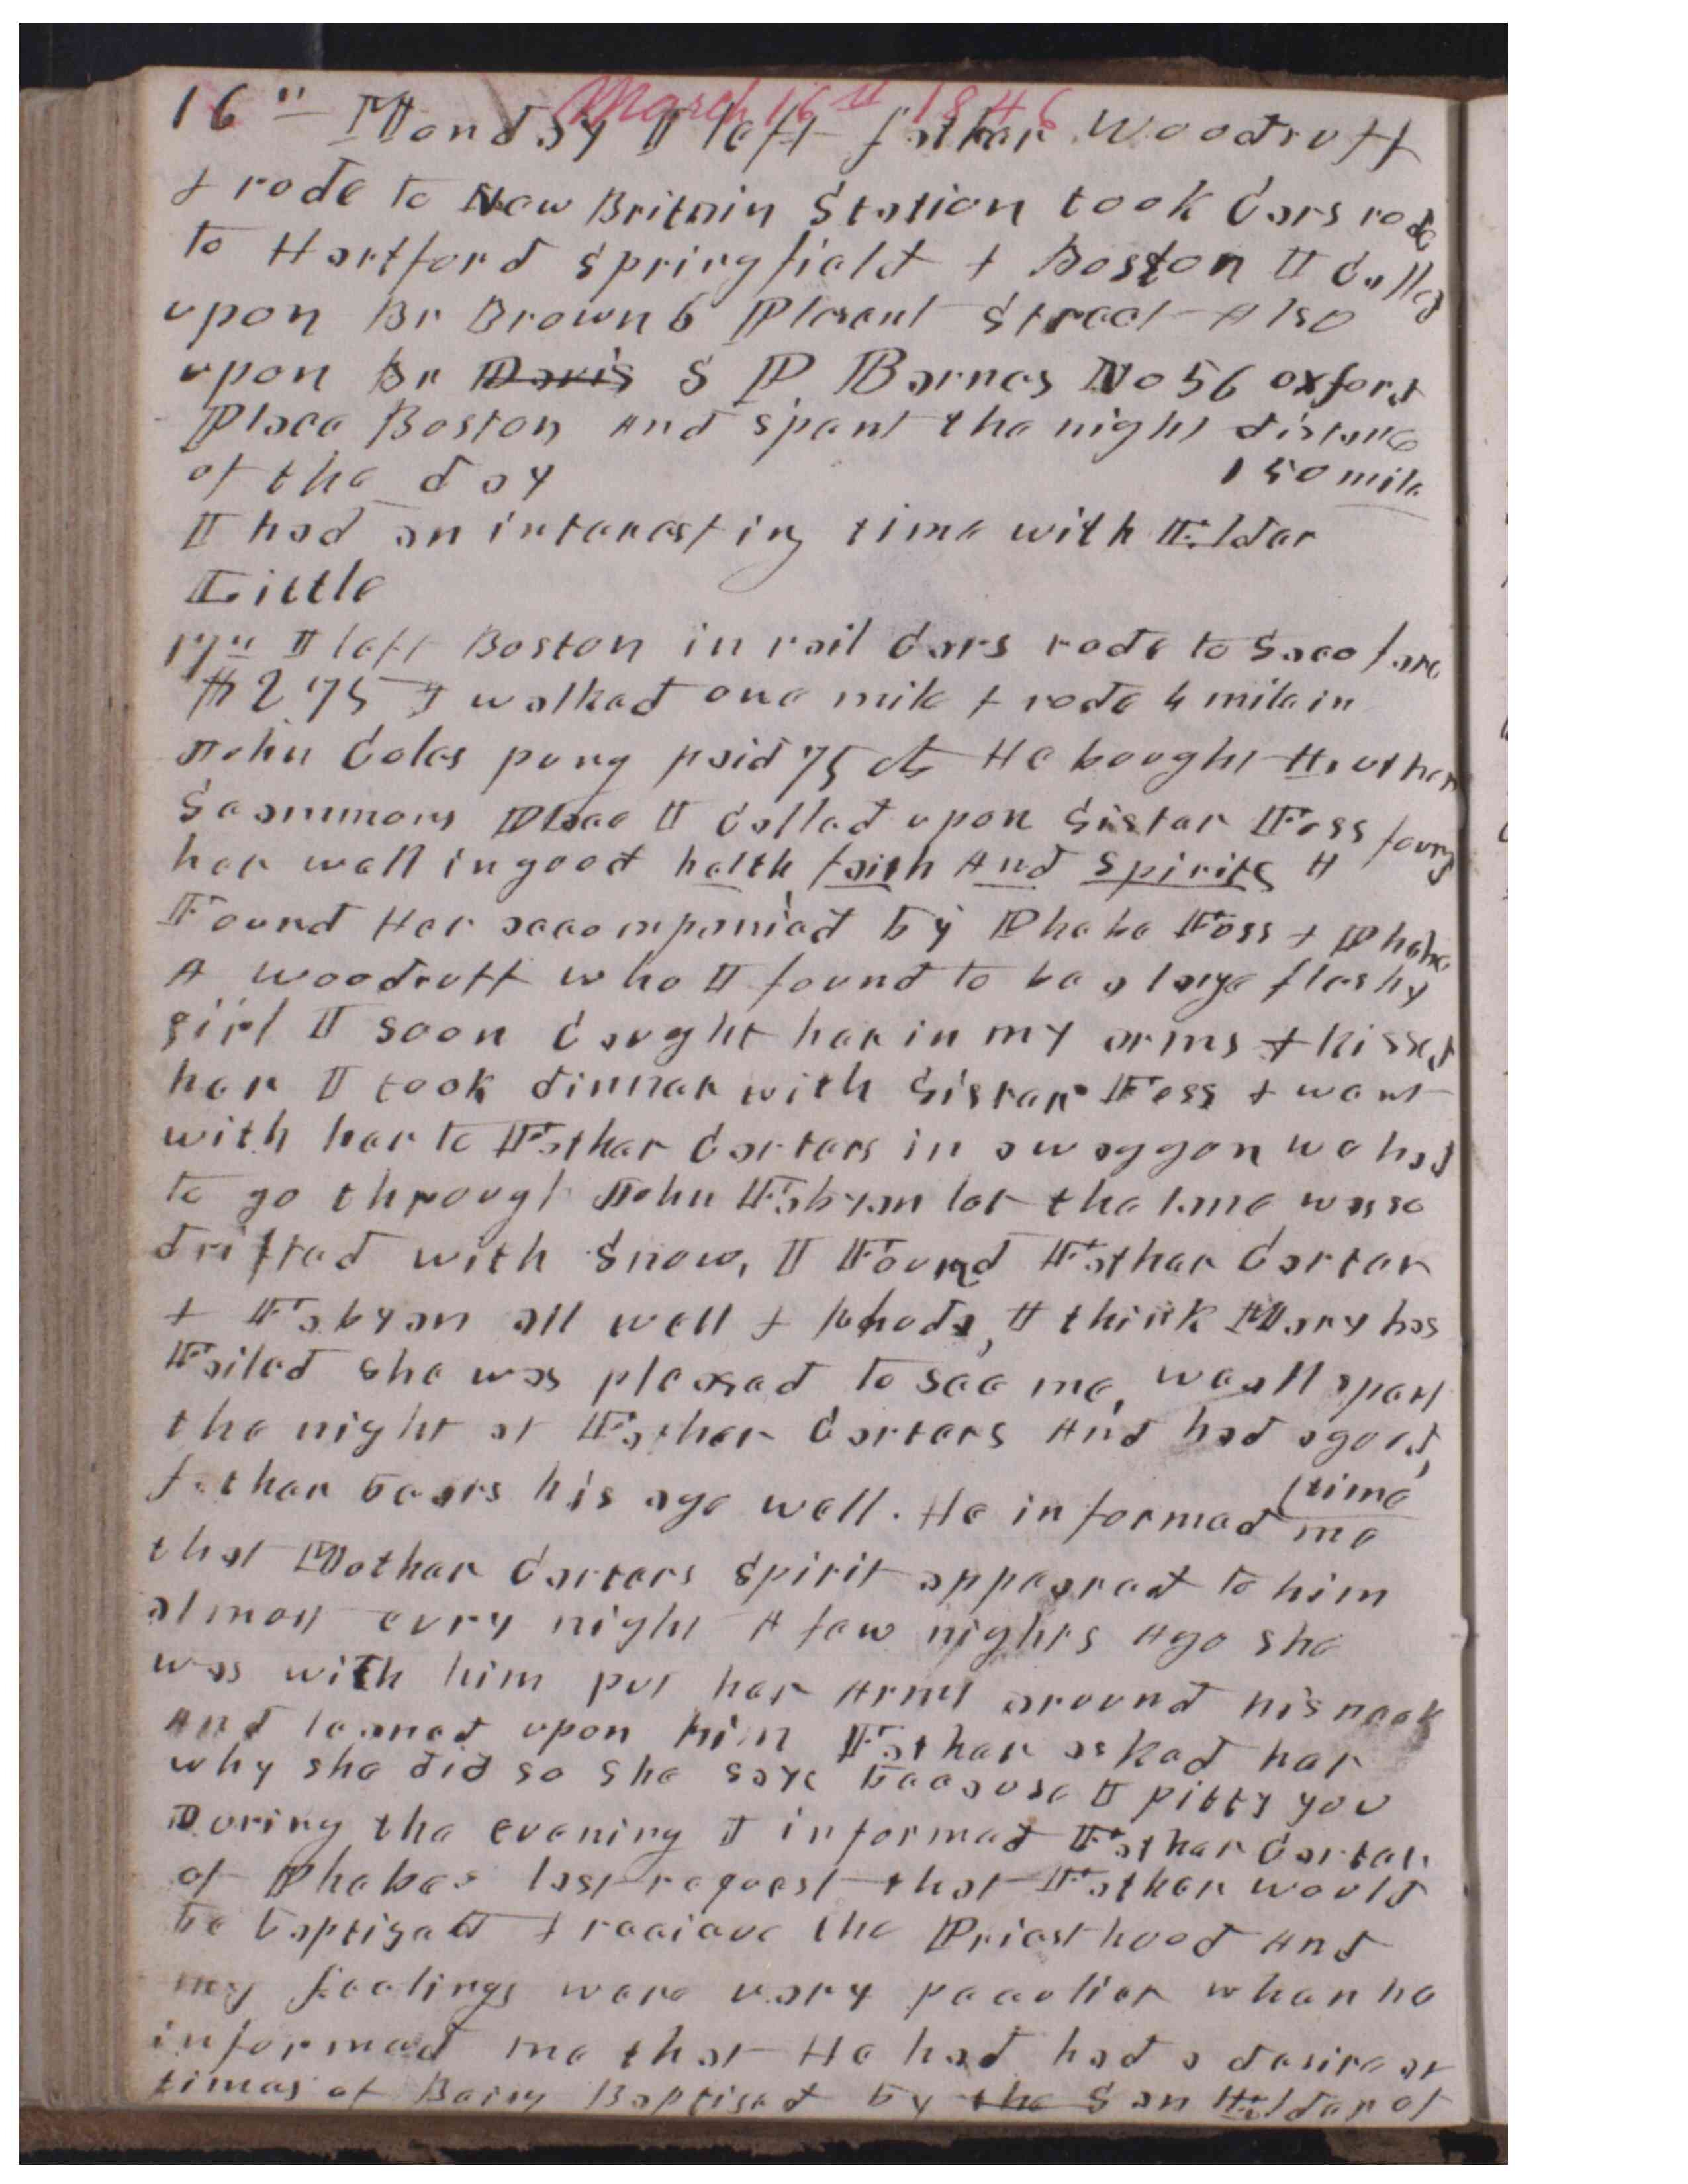 March 16th 1846
16th Monday I left father Woodruff
& rode to New Britain Station took Cars rode
to Hartford Springfield & Boston I Called
upon Br Brown 6 Plesent Street Also
upon Br Davis S P Barnes No 56 oxford
Place Boston And spent the night distance
of the day 150 mile
I had an interesting time with Elder
Little
17th I left Boston in rail Cars rode to Saco fare
$2.75 I walked one mile & rode 4 mile in
John Coles pung paid 75 cts He bought
Seammons Place I Called upon Sister Foss found
her well in good helth faith And Spirits I
Found Her accompanied by Phebe Foss & Phebe
A Woodruff who I found to be a large fleshy
girl I soon Caught her in my arms & kissed
her I took dinner with Sister Foss & went
with her to Father Carters in a waggon we had
to go through John Fabyan lot the lane was so
drifted with Snow, I Found Father Carter
& Fabyan all well & Rhoda, I think Mary has
Failed she was pleased to see me, we all spent
the night at Father Carters And had a good
(time
father bears his age well. He informed me
that Mother Carters Spirit appeared to him
almost evry night A few nights ago she
was with him put her Arms around his neck
And leaned upon him Father asked her
why she did so she says because I pitty you
During the evening I informed Father Carter
of Phebes last request that Father would
be baptised & receieve the Priesthood And
my feelings were very peculier when he
informed me that He had had a desire at
times of Being Baptised by the San Elder of